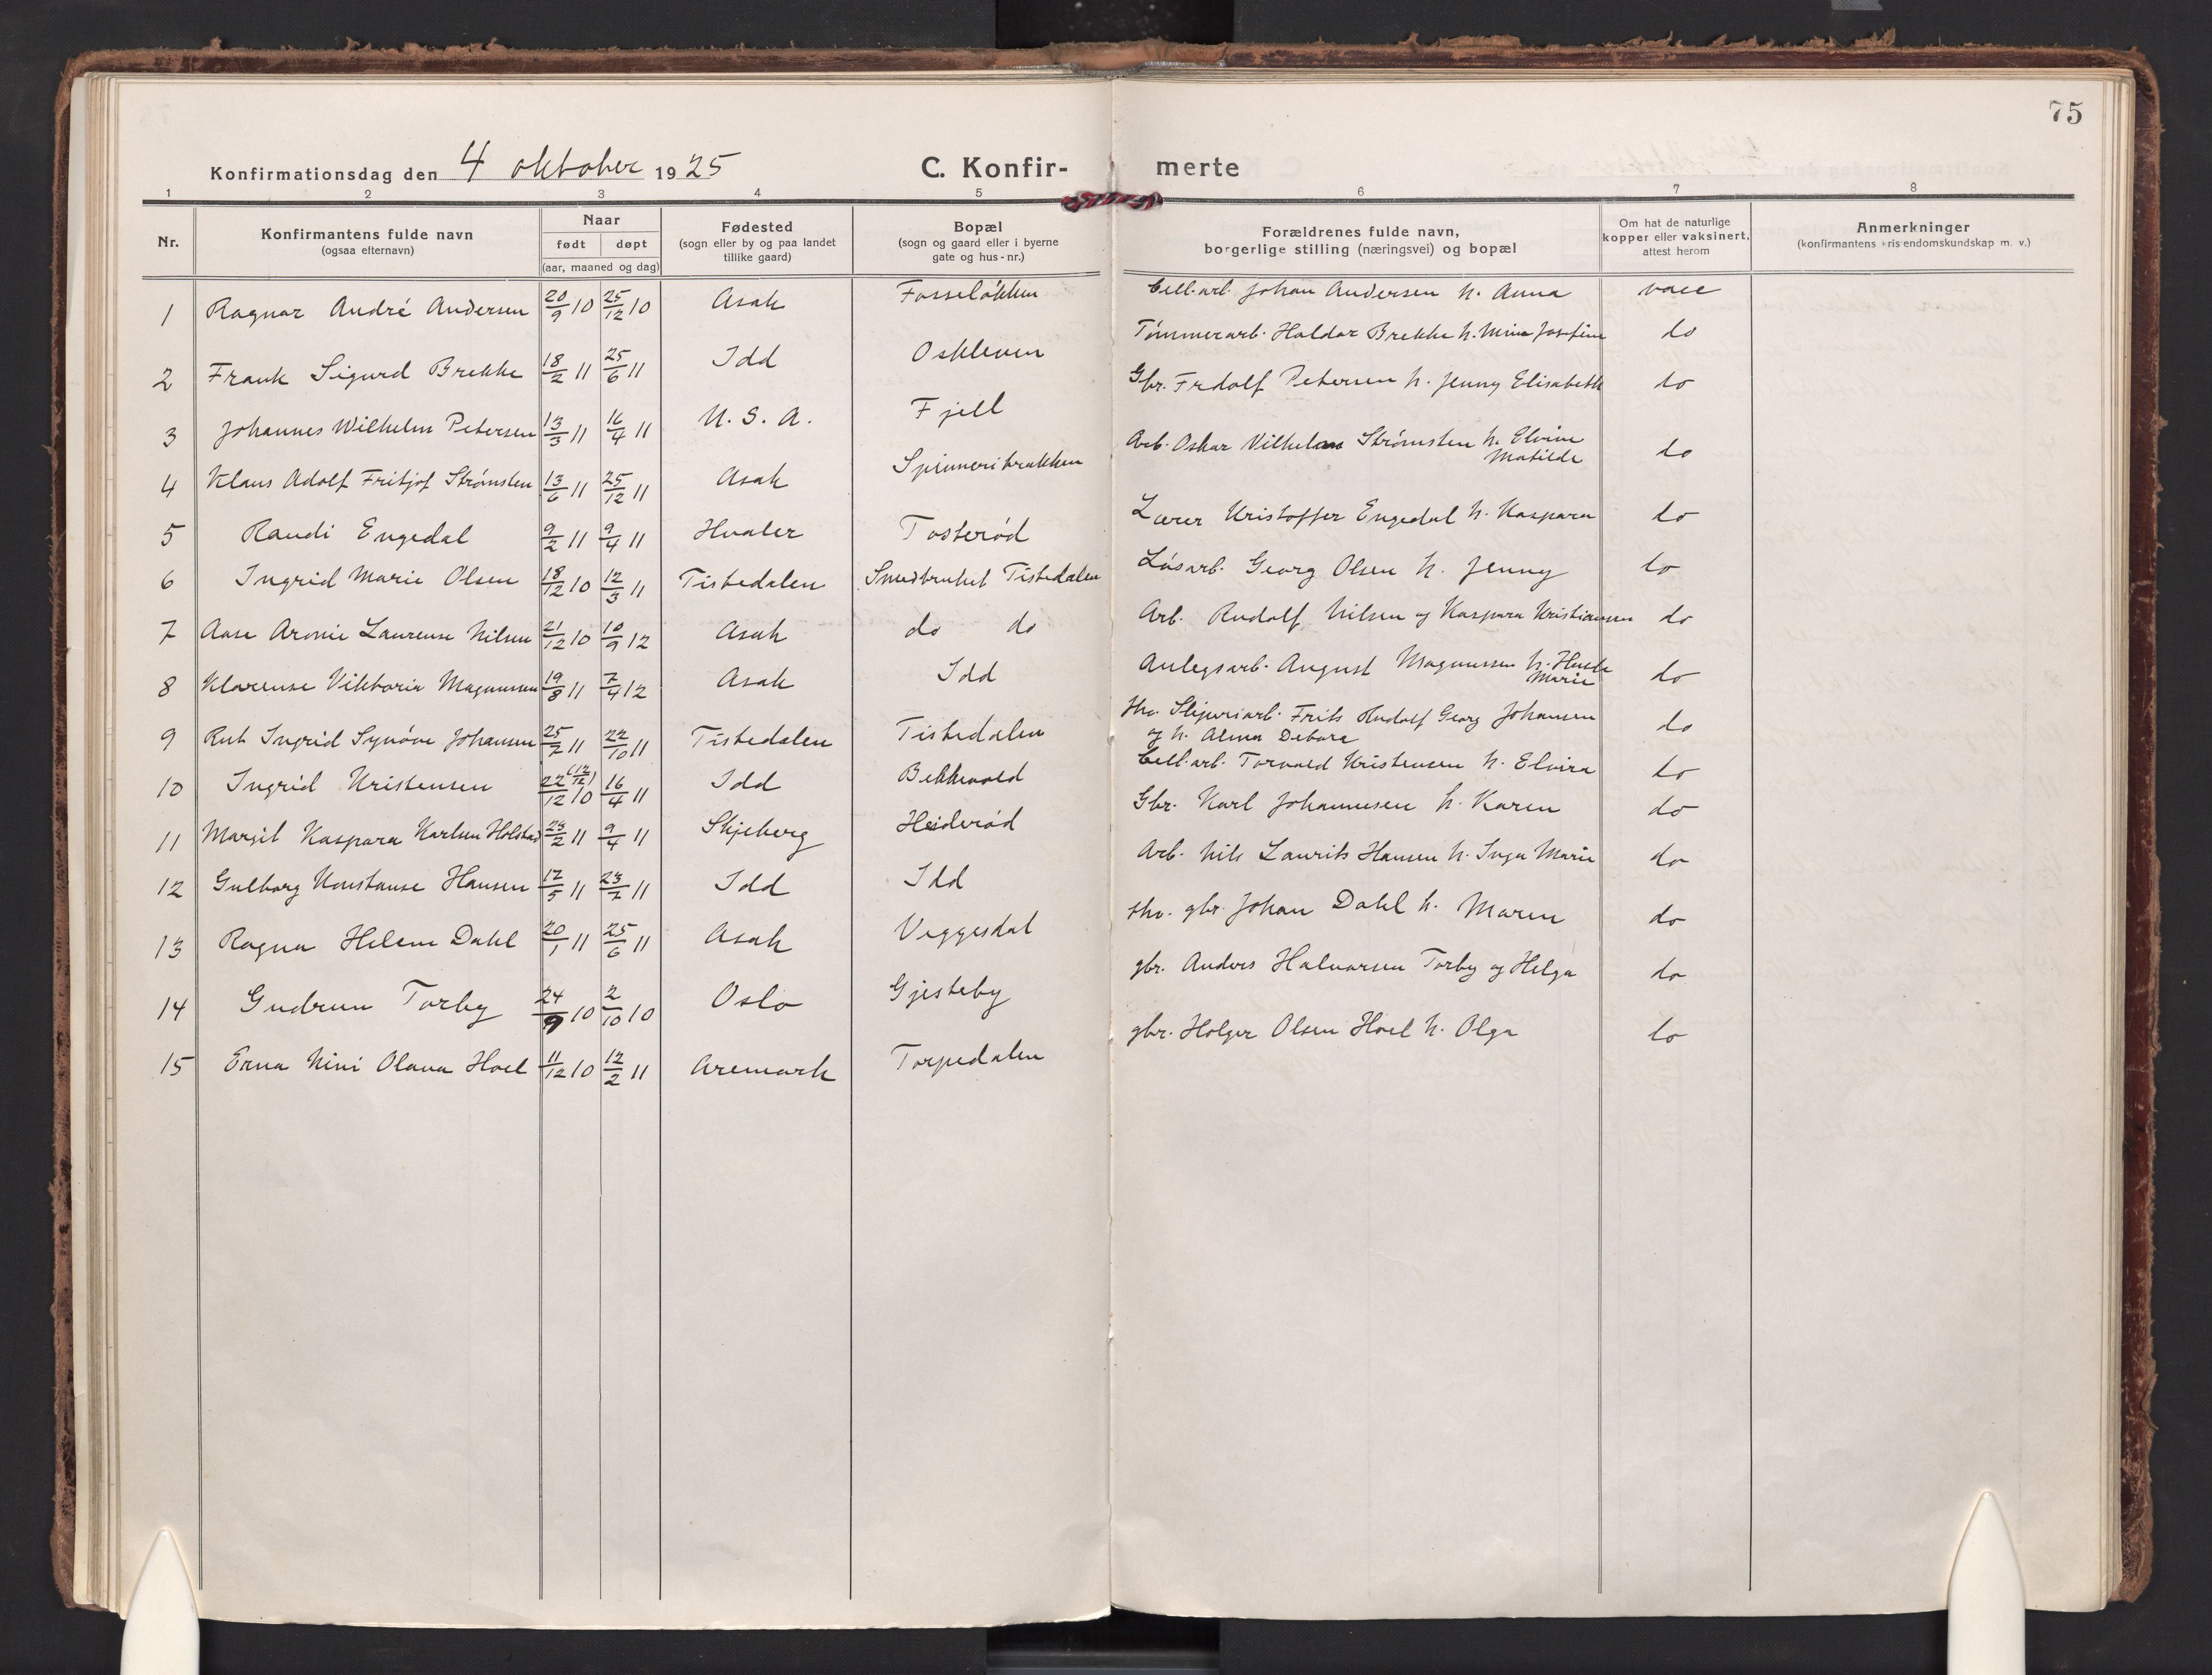 75
Konfirmationsdag den 4 oktober 1925 C. Konfirmerte
1 2 3 4 5 6 7 8
Nr. Konfirmantens fulde navn (ogsaa efternavn) Naar født døpt (aar, maaned og dag) Fødested (sogn eller by og paa landet tillike gaard) Bopæl (sogn og gaard eller i byerne gate og hus-nr.) Forældrenes fulde navn, borgerlige stilling (næringsvei) og bopæl Om hat de naturlige kopper eller vaksinert, attest herom Anmerkninger (konfirmantens kristendomskundskap m. v.)
1 Ragnar André Andersen 20/9 10 25/12 10 Asak Fosseløkken Cell.arb. Johan Andersen h. Anna vacc
2 Frank Sigurd Brekke 18/2 11 25/6 11 Idd Oskleven Tømmerarb. Haldor Brekke h. Mina Josefine do
3 Johannes Wilhelm Petersen 13/3 11 16/4 11 U. S. A. Fjell Gbr. Fridolf Petersen h. Jenny Elisabeth do
4 Klaus Adolf Fritjof Strømsten 13/6 11 25/12 11 Asak Spinneribrakken Arb. Oskar Vilhelm Strømsten h. Elvine Matilde do
5 Randi Engedal 9/2 11 9/4 11 Hvaler Tosterød Lærer Kristoffer Engedal h. Kaspara do
6 Ingrid Marie Olsen 18/12 10 12/3 11 Tistedalen Smedbruket Tistedalen Løsarb. Georg Olsen h. Jenny do
7 Aase Aronie Laurense Nilsen 21/12 10 10/9 12 Asak do do Arb. Rudolf Nilsen og Kaspara Kristiansen do
8 Klarense Viktoria Magnussen 19/8 11 7/4 12 Asak Idd Anlegsarb. August Magnussen h. Hulda Marie do
9 Rut Ingrid Synøve Johansen 25/7 11 22/10 11 Tistedalen Tistedalen fhv. Sliperiarb. Frits Rudolf Georg Johansen og h. Alma Debora do
10 Ingrid Kristensen 22/12 (12/12) 10 16/4 11 Idd Bekkevold Cell.arb. Torvald Kristensen h. Elvira do
11 Margit Kaspara Karlsen Holstad 23/2 11 9/4 11 Skjeberg Heiderød Gbr. Karl Johannesen h. Karen do
12 Gulborg Konstanse Hansen 17/5 11 23/7 11 Idd Idd Arb. Nils Laurits Hansen h. Inga Marie do
13 Ragna Helene Dahl 20/1 11 25/6 11 Asak Veggesdal fhv. gbr. Johan Dahl h. Maren do
14 Gudrun Torby 24/9 10 2/10 10 Oslo Gjesteby gbr. Anders Halvorsen Torby og Helga do
15 Erna Nini Olava Hoel 11/12 10 12/2 11 Aremark Torpedalen gbr. Holger Olsen Hoel h. Olga do